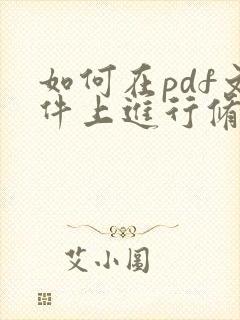 如何在pdf文
件上进行修
艾小图